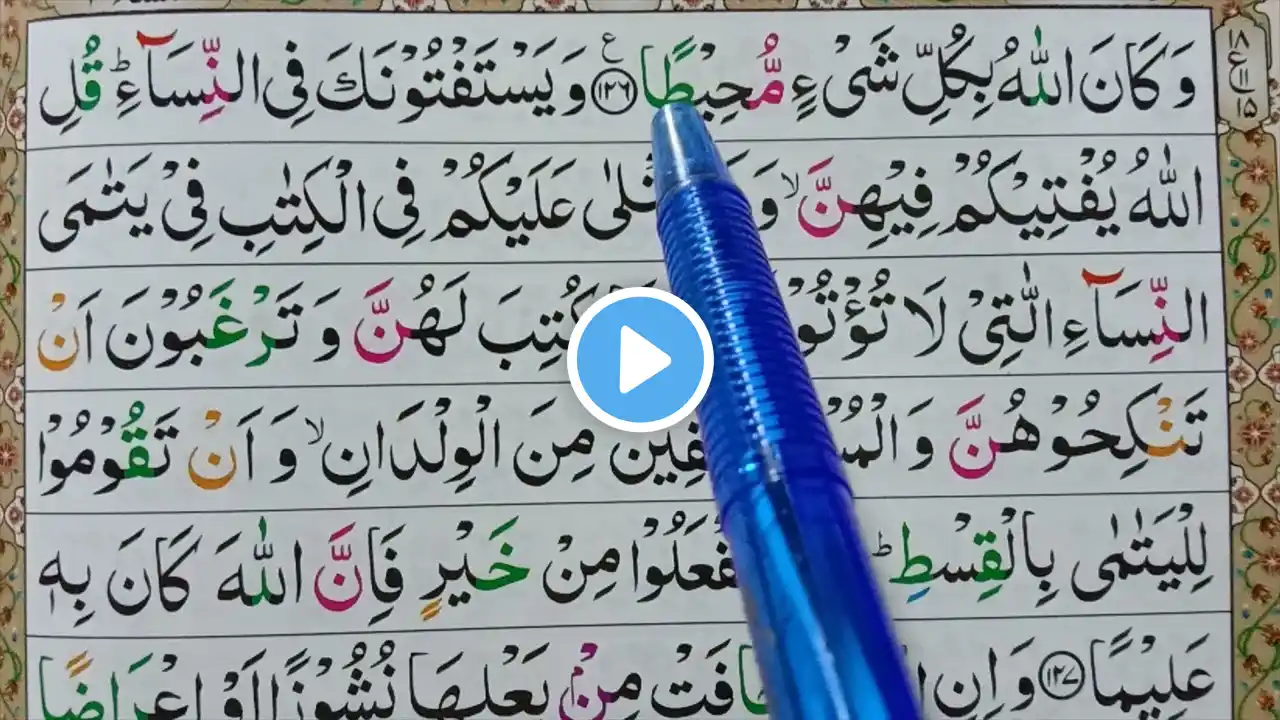 وَ كَانَ اللّٰهُ بِكُلِّ شَیْءٍ مُّحِیْطًا ﴿۱۲۶﴾ ع وَ یَسْتَفْتُوْنَكَ فِی النِّسَآءِ ؕ قُلِ
اللّٰهُ یُفْتِیْكُمْ فِیْهِنَّ ۙ وَ عَلَیْكُمْ فِی الْكِتٰبِ فِیْ یَتٰمَی
النِّسَآءِ الّٰتِیْ لَا كُتِبَ لَهُنَّ وَ تَرْغَبُوْنَ اَنْ
تَنْكِحُوْهُنَّ وَ مِنَ الْوِلْدَانِ ۙ وَ اَنْ تَقُوْمُوْا
لِلْیَتٰمٰی بِالْقِسْطِ ؕ مِنْ خَیْرٍ فَاِنَّ اللّٰهَ كَانَ بِهٖ
عَلِیْمًا ﴿۱۲۷﴾ وَ اِنِ مِنْۢ بَعْلِهَا نُشُوْزًا اَوْ اِعْرَاضًا
۱۸
ع ۱۱
۱۵